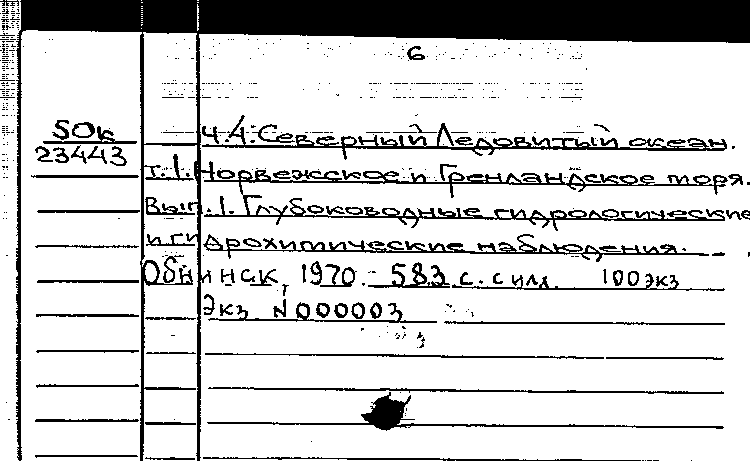 6
SOк
23443
Ч.4. Северный Ледовитый океан.
т.1. Норвежское и Гренландское моря.
Вып.1. Глубоководные гидрологические
и гидрохимические наблюдения.
Обнинск, 1970. 583 с. с илл. 100 экз
Экз N000003